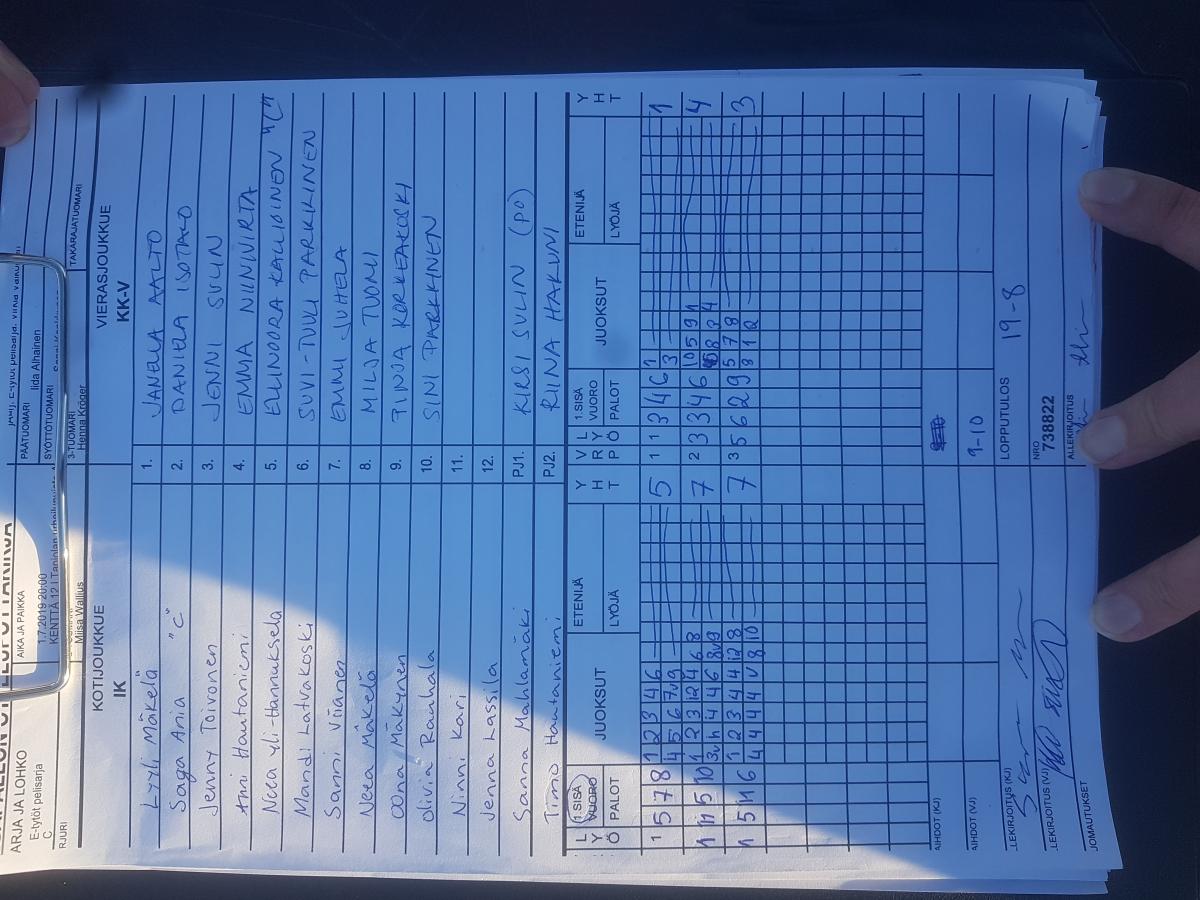 ARJA JA LOHKO
E-tytöt pelisarja
C
AIKA JA PAIKKA
1.7.2019 20:00
PÄÄTUOMARI Iida Alhainen
SYÖTTÖTUOMARI
RJURI
Miisa Wallius
3-TUOMARI
Henna Kröger
TAKARAJATUOMARI
KOTIJOUKKUE VIERASJOUKKUE
IK KK-V
Lyyli Mäkelä 1. JANELLA AALTO
Saga Ania "C" 2. DANIELA ISOTALO
Jenny Toivonen 3. JENNI SULIN
Anni Hautaniemi 4. EMMA NIINIVIRTA
Neea Yli-Hannuksela 5. ELLINOORA KALLIOINEN "C"
Mandi Latvakoski 6. SUVI-TUULI PARKKINEN
Sanni Viianen 7. EMMI JUHELA
Neea Mäkelä 8. MILJA TUOMI
Oona Mäkynen 9. PINJA KORKEAKOSKI
Olivia Rauhala 10. SINI PARKKINEN
Ninni Kari 11.
Jenna Lassila 12.
Sanna Mahlamäki PJ1. KIRSI SULIN (PO)
Timo Hautaniemi PJ2. RIINA HAKUNI
L Y Ö 1.SISÄ VUORO PALOT JUOKSUT ETENIJÄ LYÖJÄ Y H T V R P L Y Ö 1.SISÄ VUORO PALOT JUOKSUT ETENIJÄ LYÖJÄ Y H T
1 5 7 8 1 2 3 4 6 5 1 1 3 4 6 1 1
4 5 6 7v 9 3
1 11 5 10 1 2 3 12 4 6 8 7 2 3 3 4 6 10 5 9 1 4
3v h 4 4 6 8v 9 8 3 4
1 5 11 6 1 2 3 4 4 12 8 7 3 5 6 2 9 5 7 8 3
4 4 4 4 v 8 10 8 1 2
AIHDOT (KJ)
AIHDOT (VJ) 9-10
LEKIRJOITUS (KJ) LOPPUTULOS 19-8
LEKIRJOITUS (VJ) NRO
738822
JOMAUTUKSET ALLEKIRJOITUS